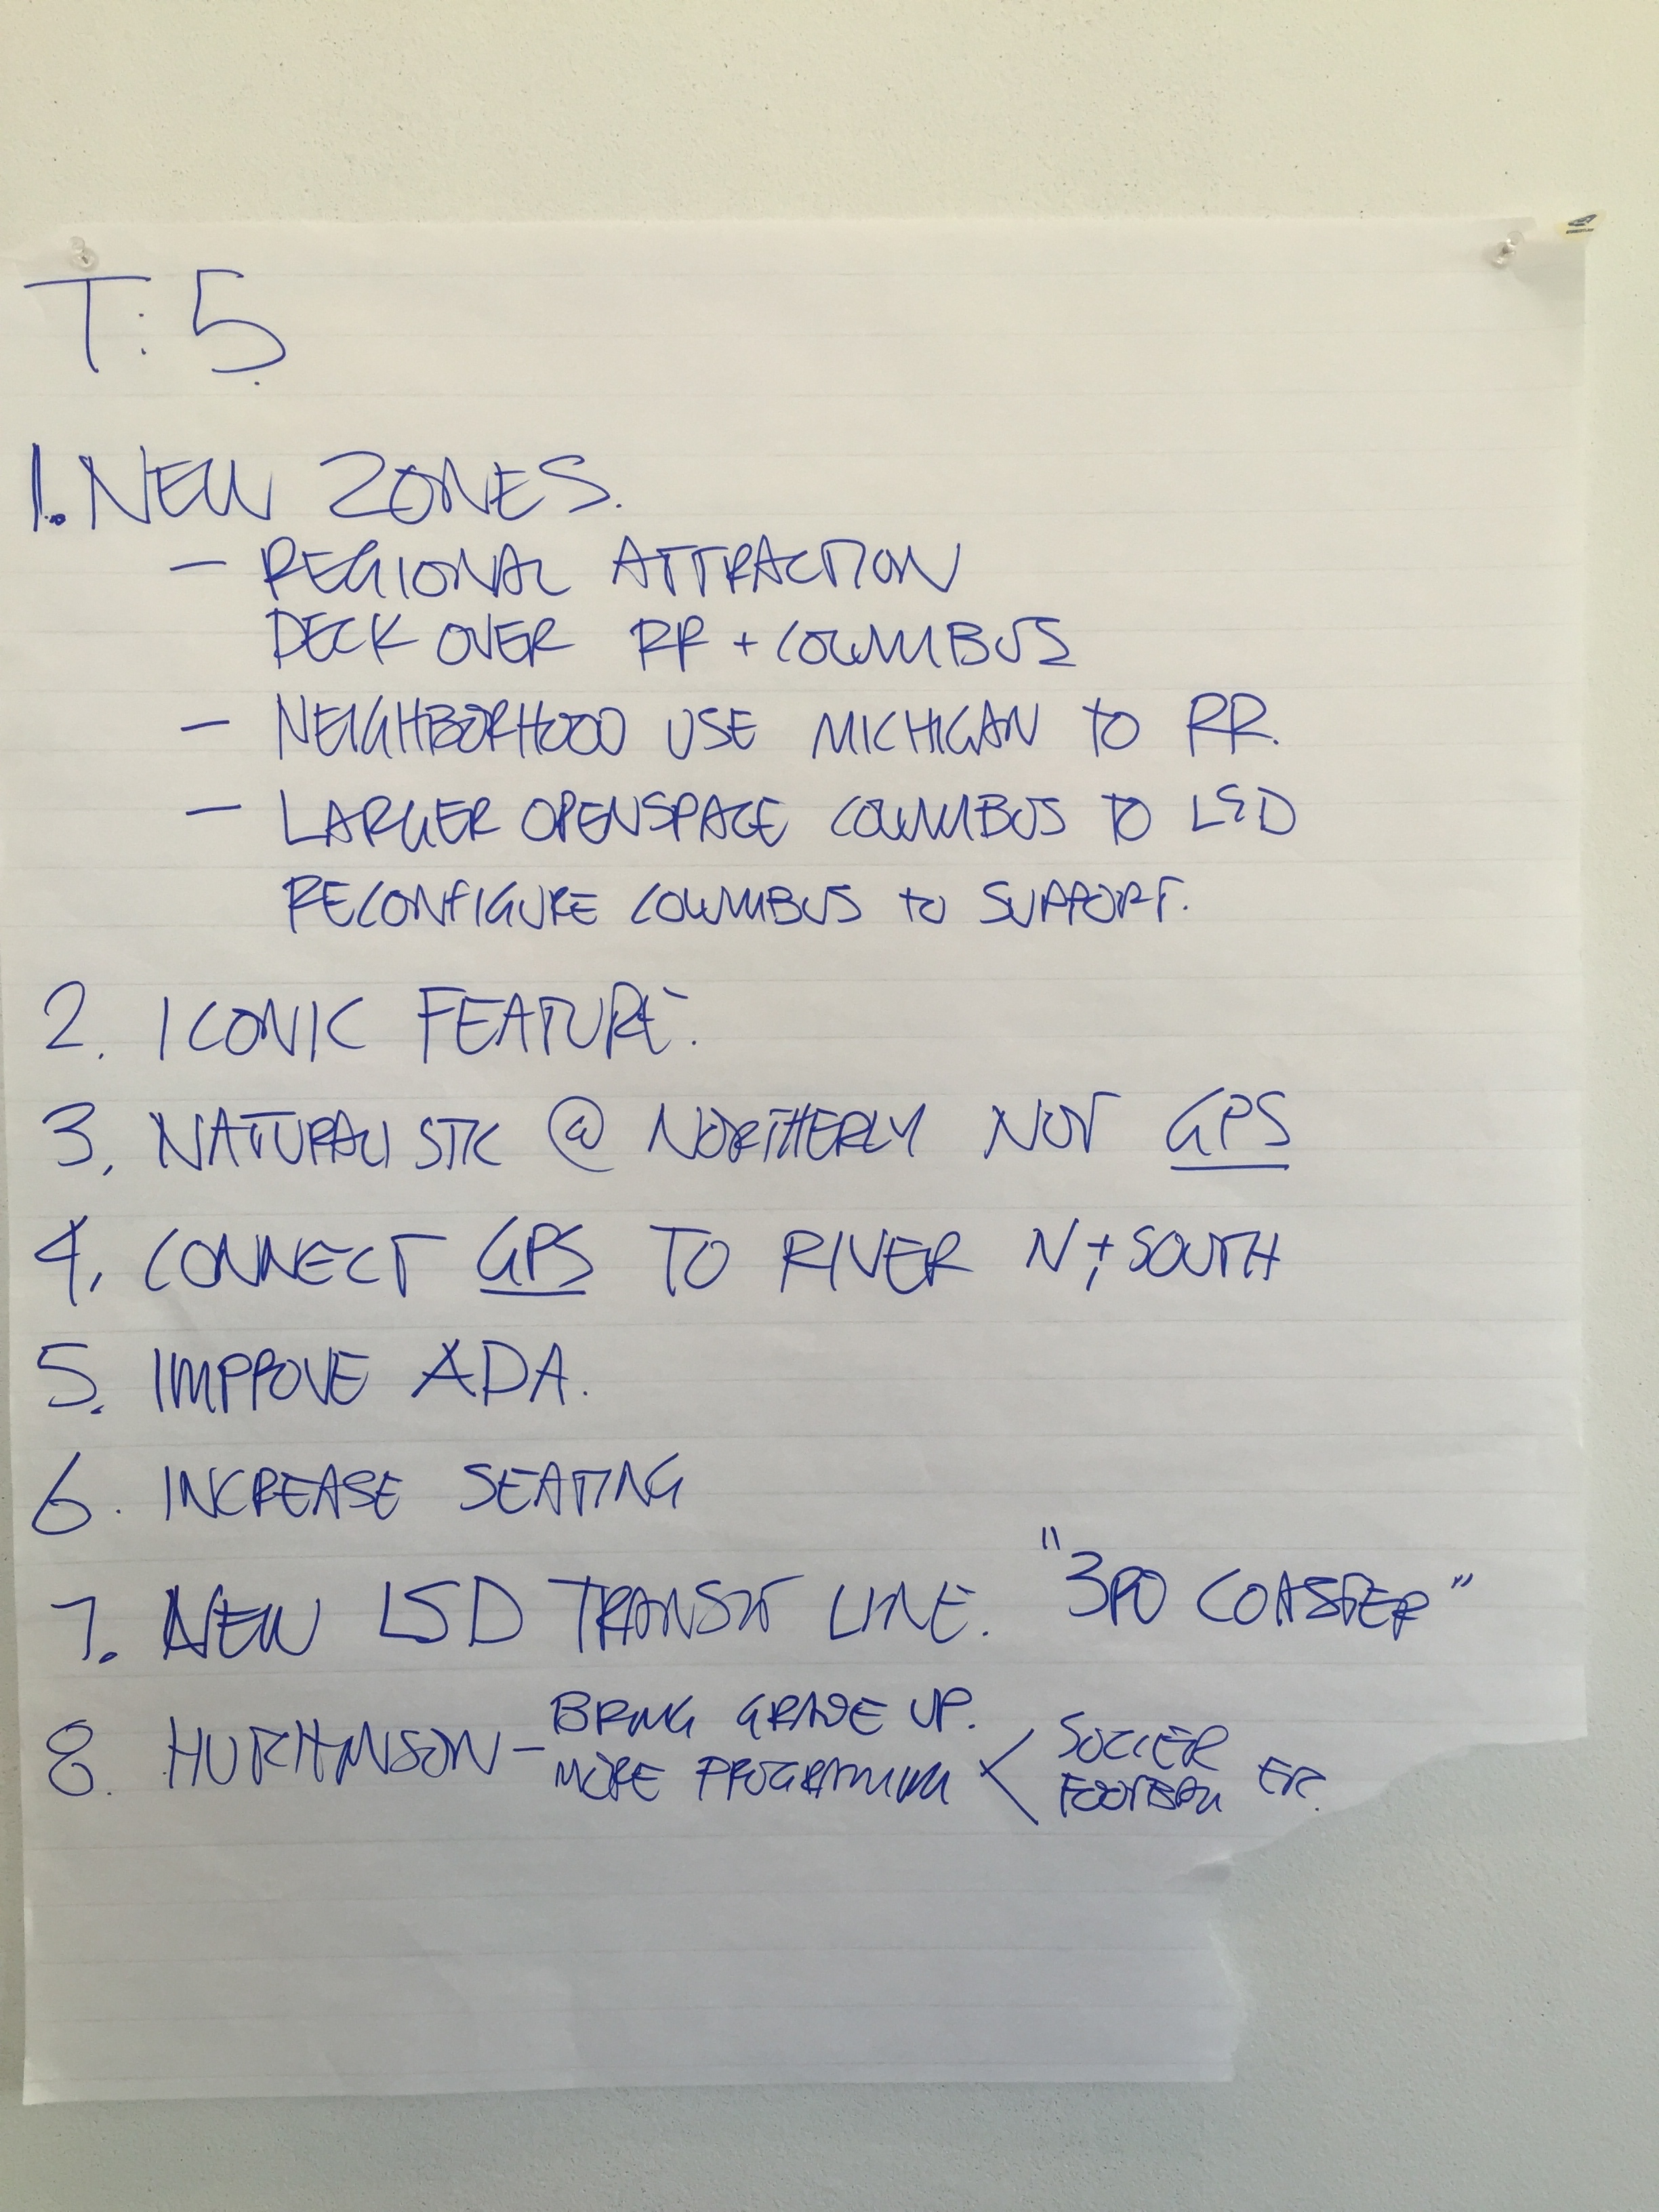 T: 5.
1. NEW ZONES.
— REGIONAL ATTRACTION
DECK OVER RR + COLUMBUS
— NEIGHBORHOOD USE MICHIGAN TO RR.
— LARGER OPENSPACE COLUMBUS TO LSD
RECONFIGURE COLUMBUS TO SUPPORT.
2. ICONIC FEATURE.
3. NATURALISTIC @ NORTHERLY NOT GPS
4. CONNECT GPS TO RIVER N + SOUTH
5. IMPROVE ADA.
6. INCREASE SEATING
7. NEW LSD TRANSIT LINE. "3RD COASTER"
8. HUTCHINSON — BRING GRADE UP.
MORE PROGRAMMING < SOCCER
FOOTBALL ETC.